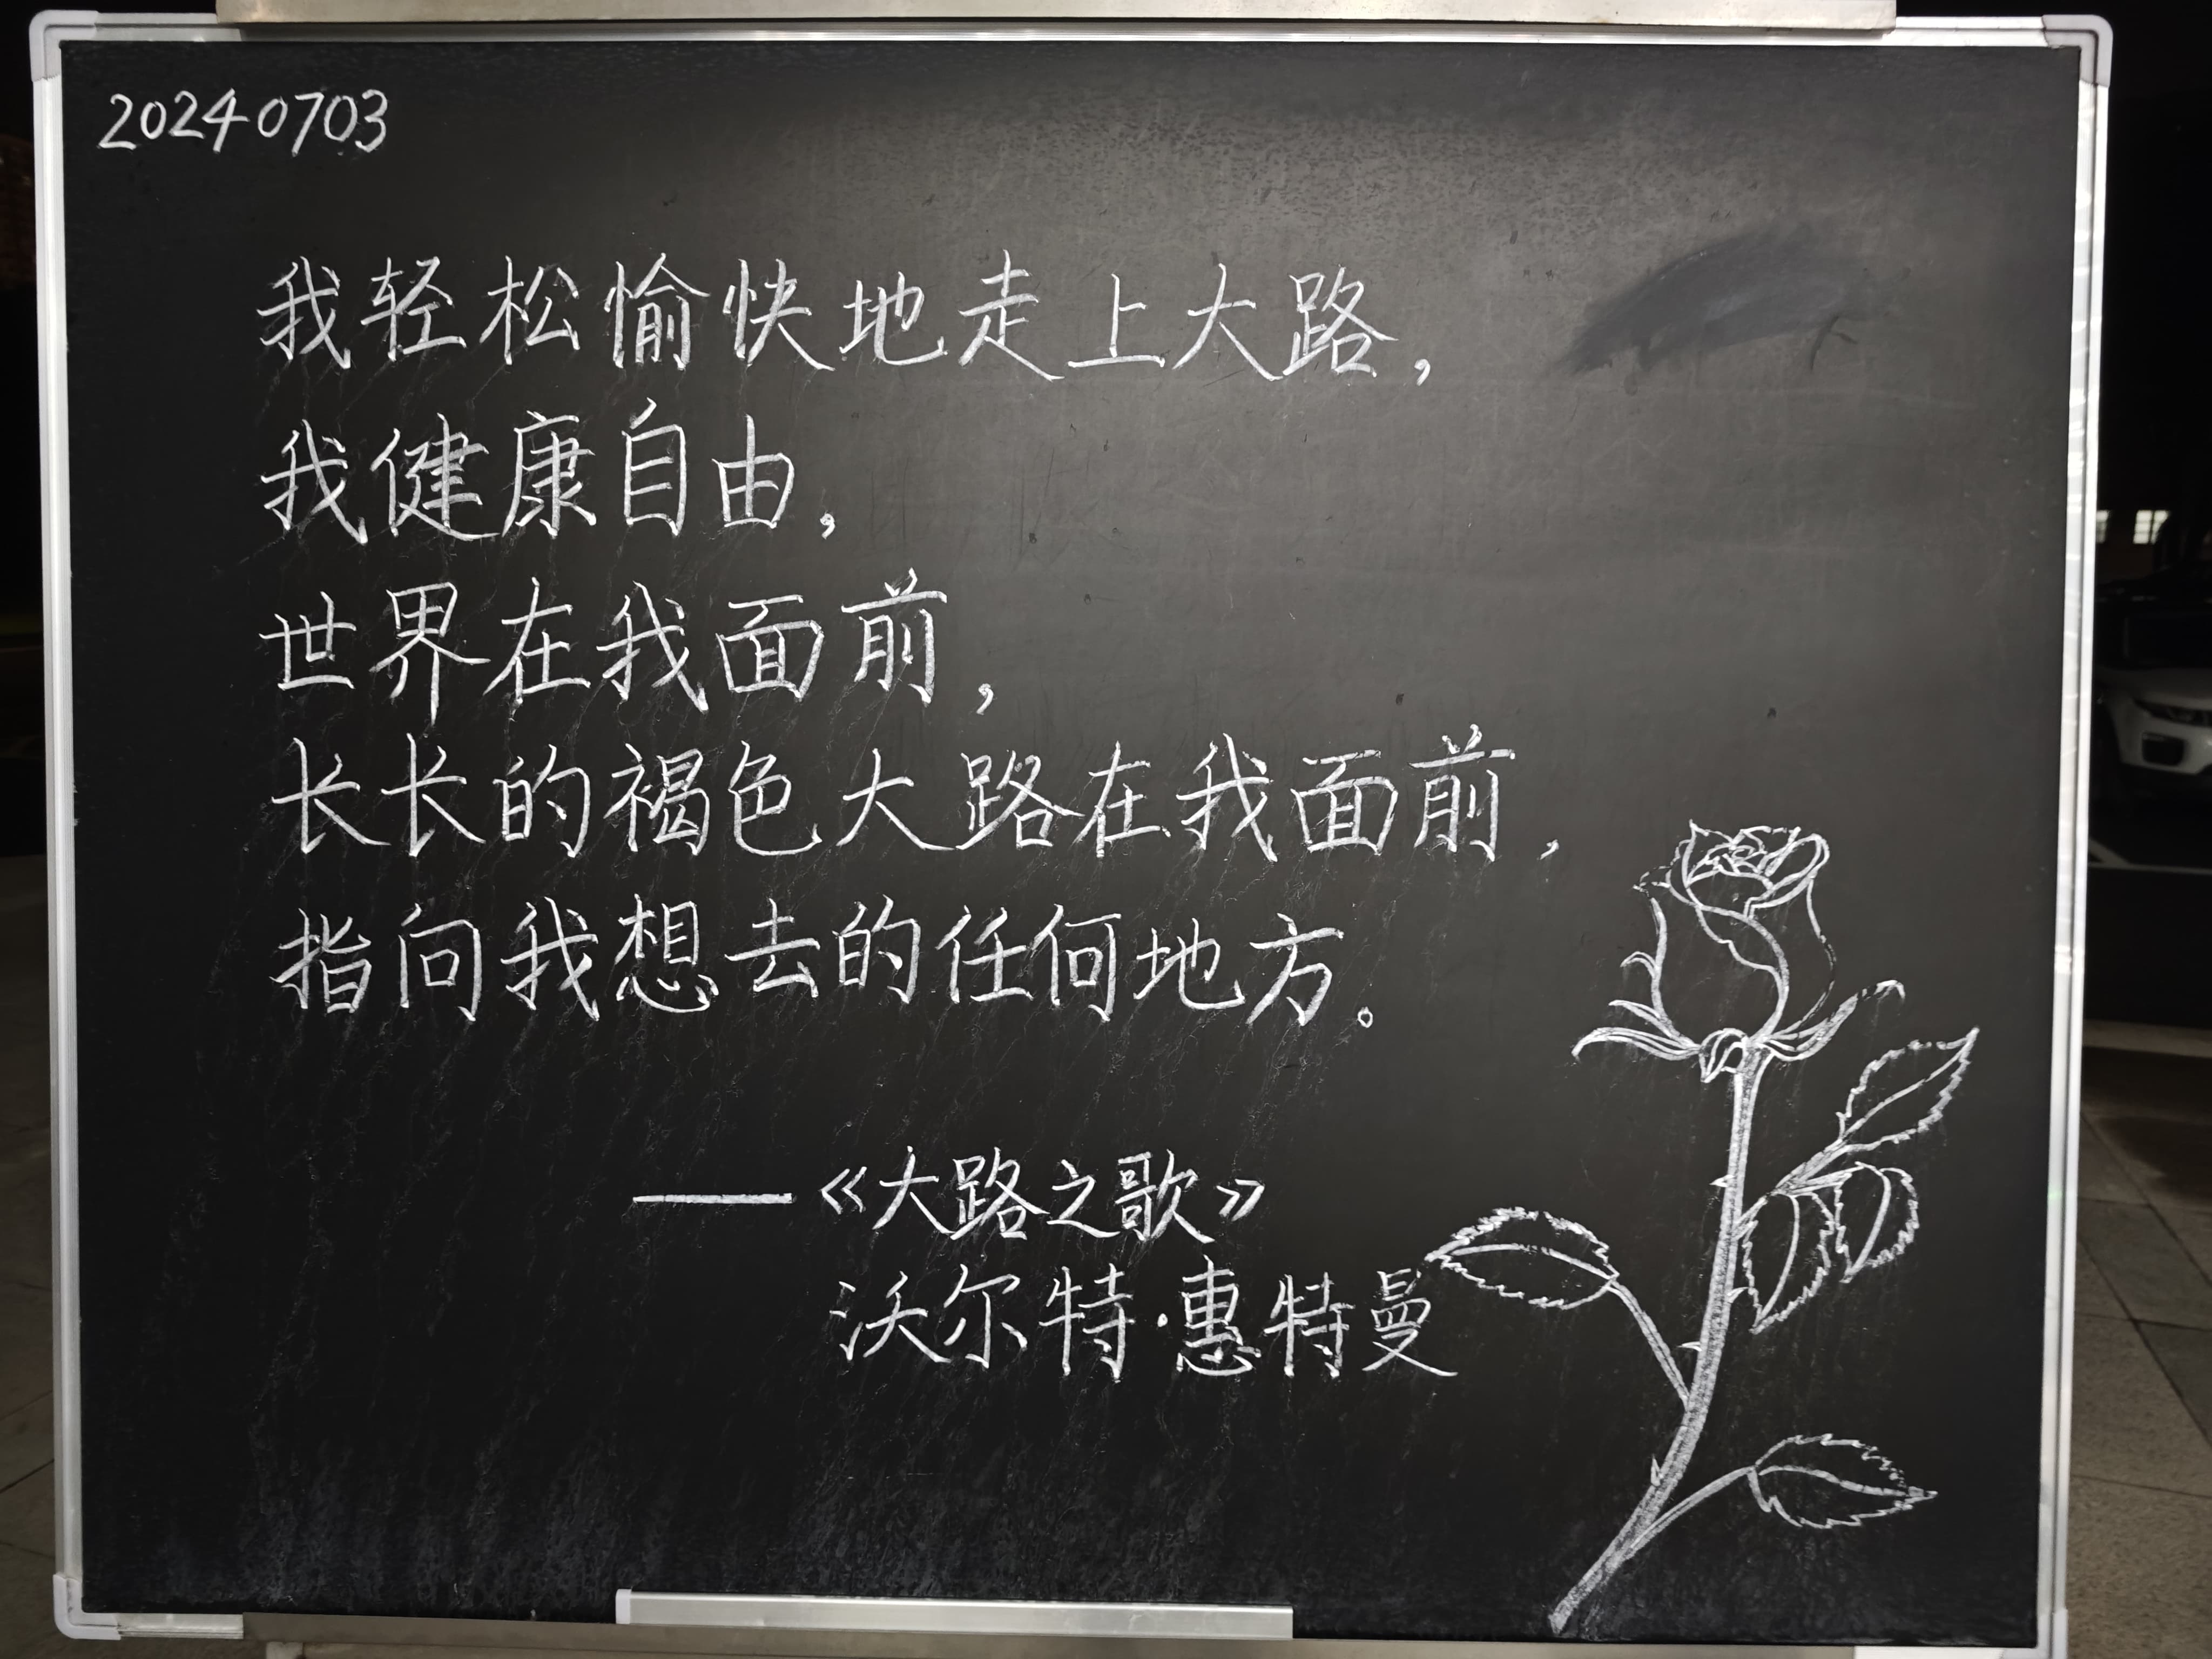 20240703
我轻松愉快地走上大路，
我健康自由，
世界在我面前，
长长的褐色大路在我面前，
指向我想去的任何地方。
——《大路之歌》
沃尔特·惠特曼